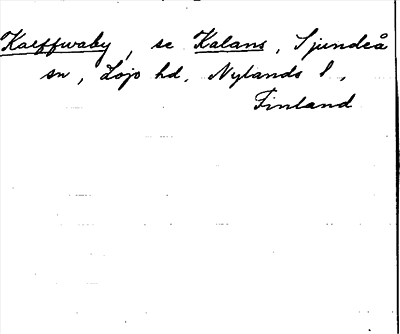 Kalffwaby, se Kalans, Sjundeå
sn, Lojo hd, Nylands l.,
Finland